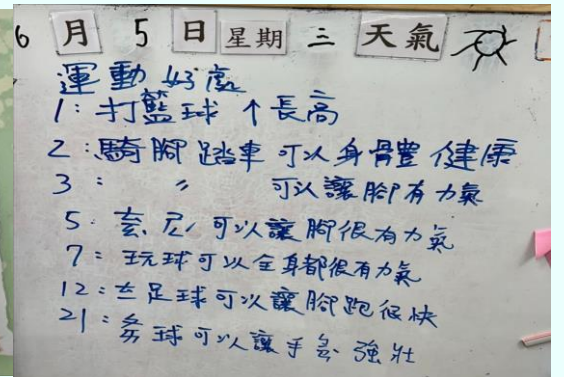 6 月 5 日 星期 三 天氣
運動好處
1: 打籃球 ↑ 長高
2: 騎腳踏車 可以身骨豊健康
3: 〃 可以讓腳有力氣
5: 可以讓腳很有力氣
7: 玩球可以全身都很有力氣
12: 足球可以讓腳跑很快
21: 球可以讓手 強壯